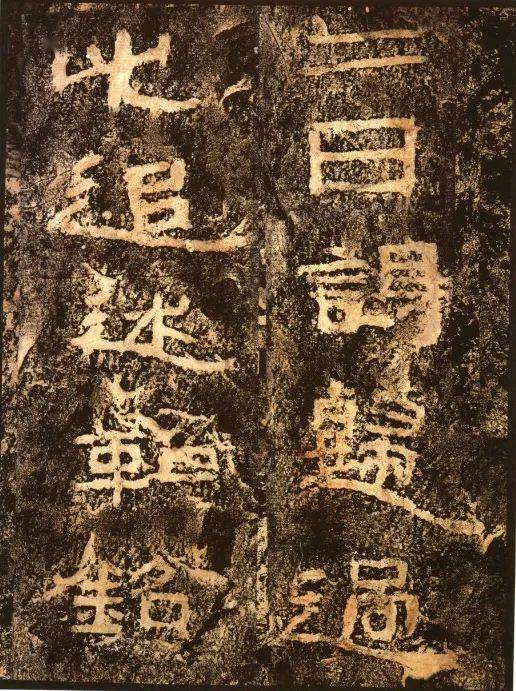 二日謁歸過
此追述勒銘